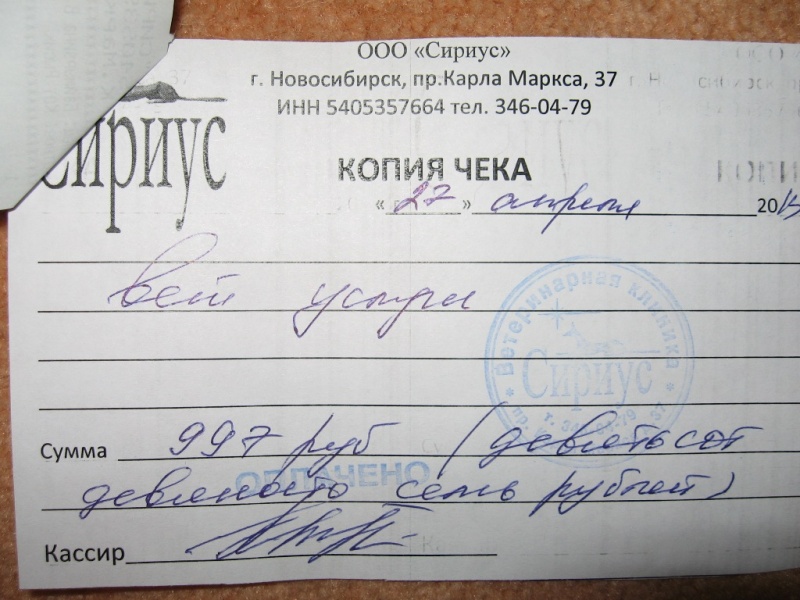 ООО «Сириус»
г. Новосибирск, пр.Карла Маркса, 37
ИНН 5405357664 тел. 346-04-79
Сириус
КОПИЯ ЧЕКА
« 27 » апреля 201
вет услуги
* Ветеринарная клиника *
Сириус
Сумма 997 руб (девятьсот
девяносто семь рублей)
ОПЛАЧЕНО
Кассир